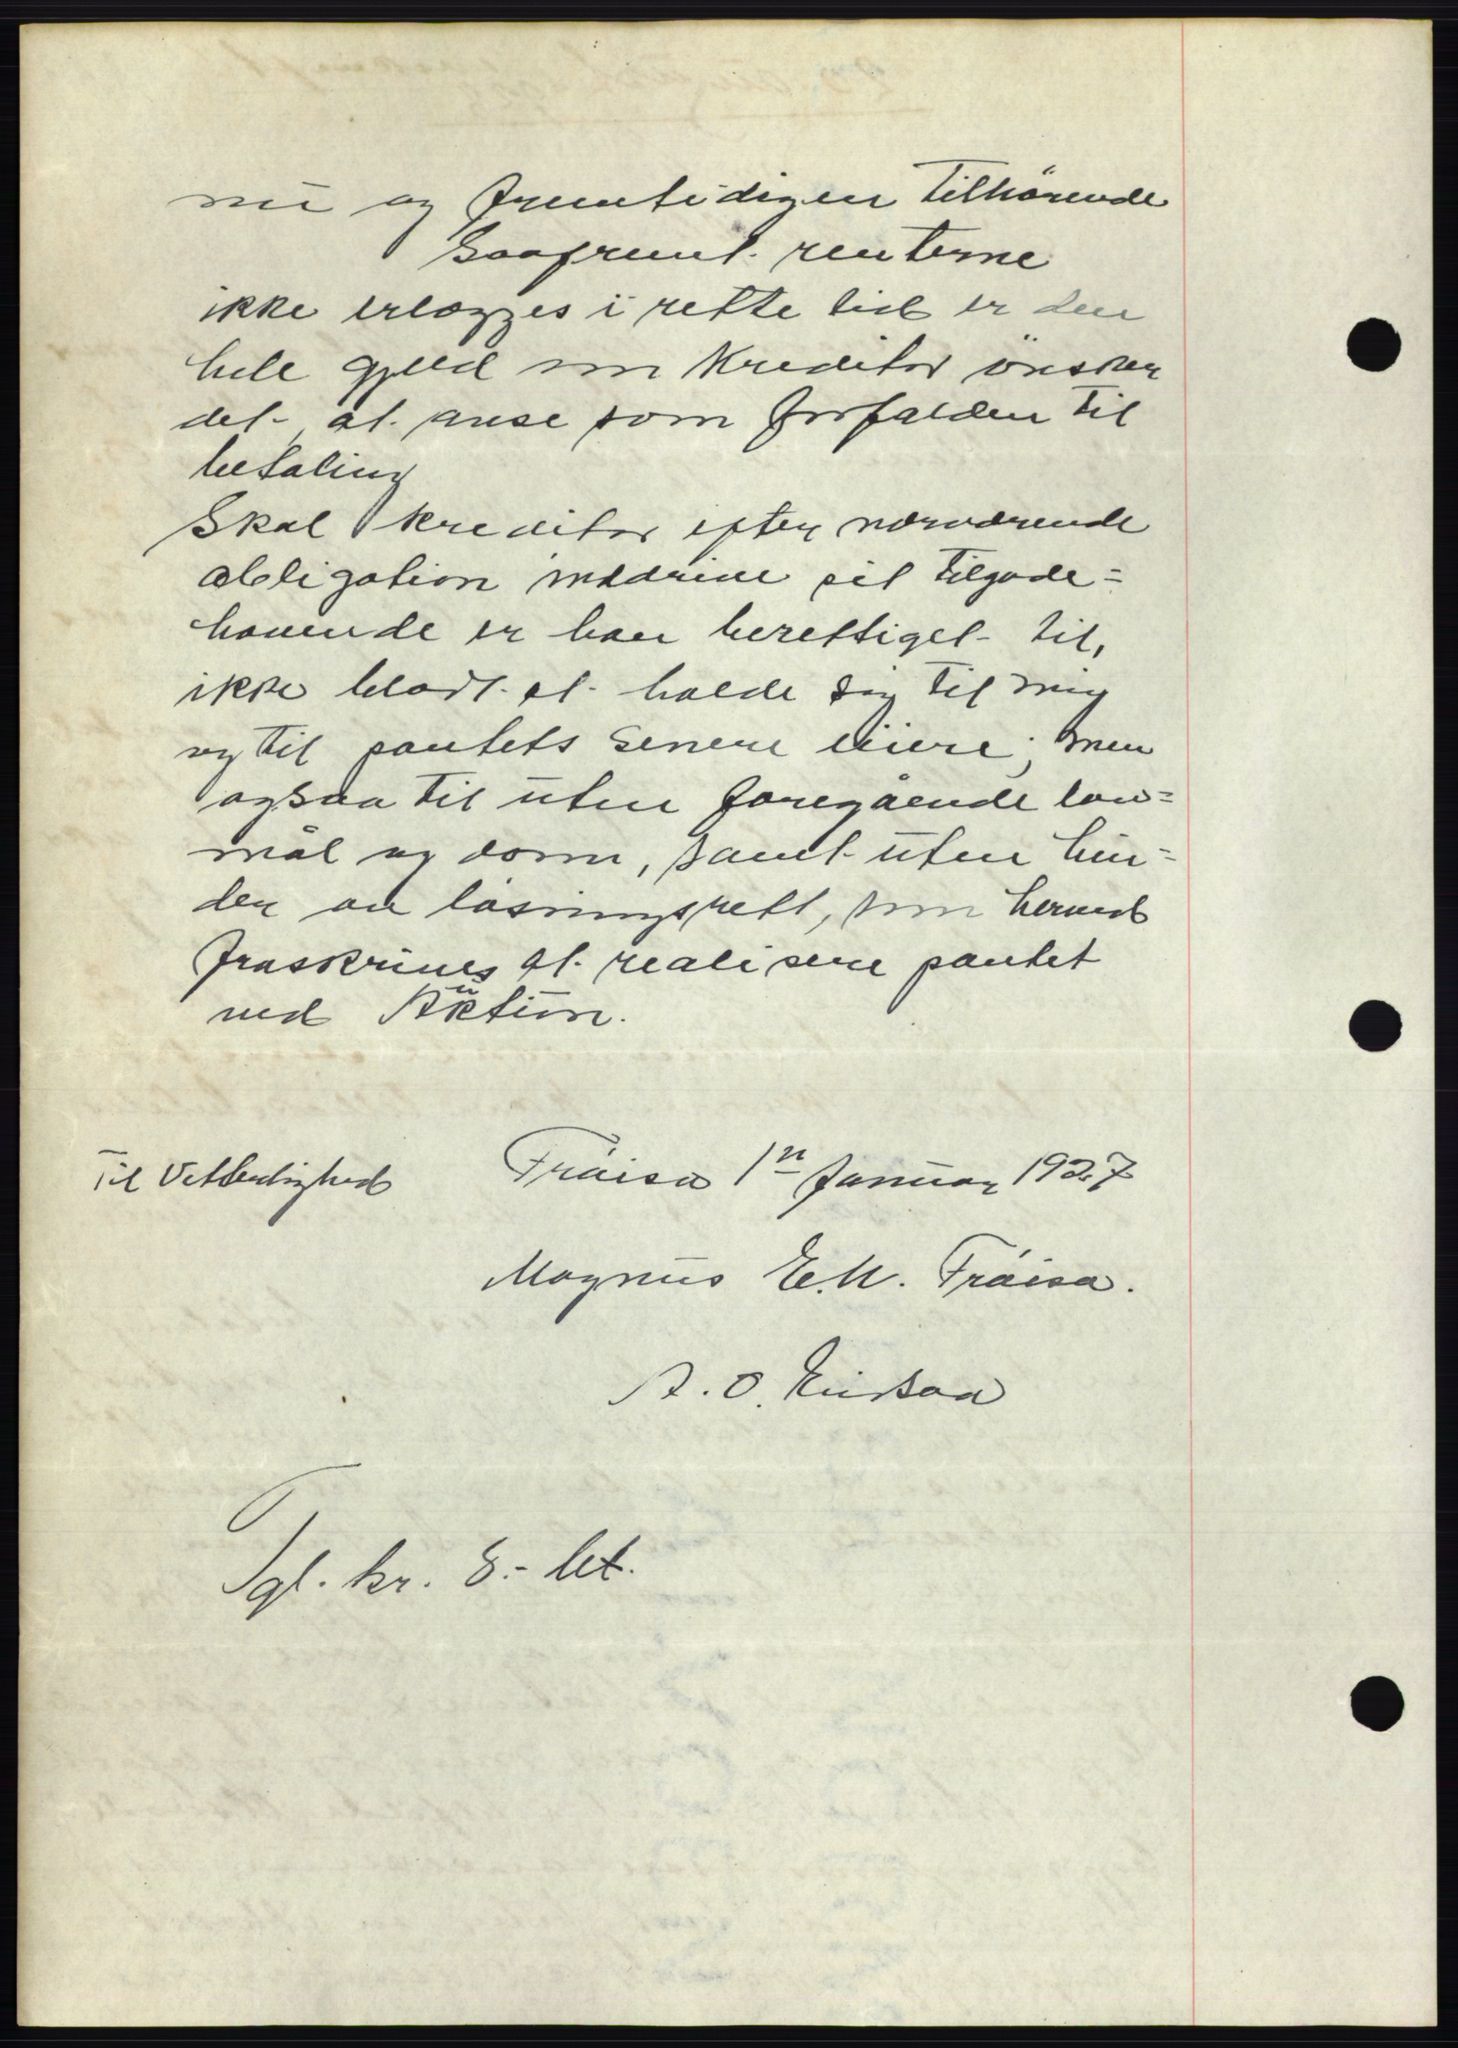 nu og fremtidigen tilhørende
Saafremt renterne
ikke erlægges i rette tid er den
hele gjeld om kreditor önsker
det at anse som forfalden til
betaling
Skal kreditor efter nærværende
obligation inddrive sit tilgode=
havende er han berettiget til,
ikke blodt at holde sig til mig
og til pantets senere eiere; men
ogsaa til uten foregående lov=
mål og dom, samt uten hin=
der av løsningsrett, som herved
fraskrives at realisere pantet
ved Auktion.
Til Vitterlighed Tråisa 1n Januar 1927
Magnus E.M. Tråisa.
A. O.
Tgl. kr. 8.- bet.